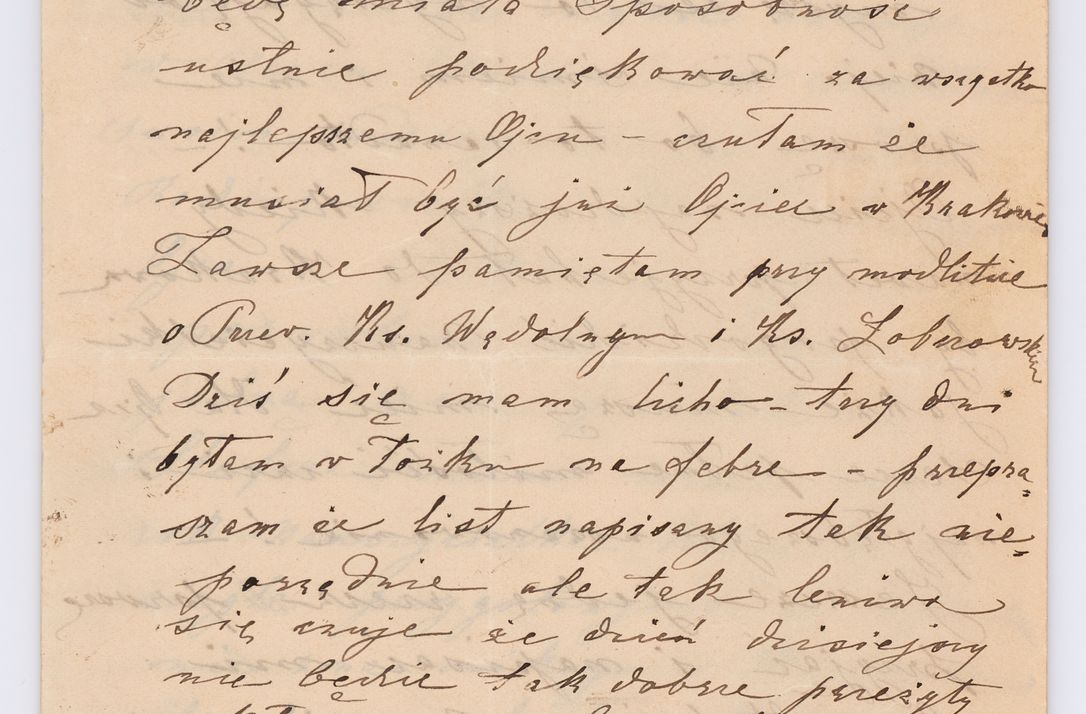 będę miała sposobność
ustnie podziękować za wszystko
najlepszemu Ojcu – czułam że
musiał być już Ojciec w Krakowie,
Zawsze pamiętam przy modlitwie
o Przew. Ks. Wądolnym i Ks. Łobczowskim
Dziś się mam licho – trzy dni
byłam w łóżku na febrę – przepra-
szam że list napisany tak nie-
porządnie ale tak leniwo
się czuje że dzień dzisiejszy
nie będzie tak dobrze przeżyty